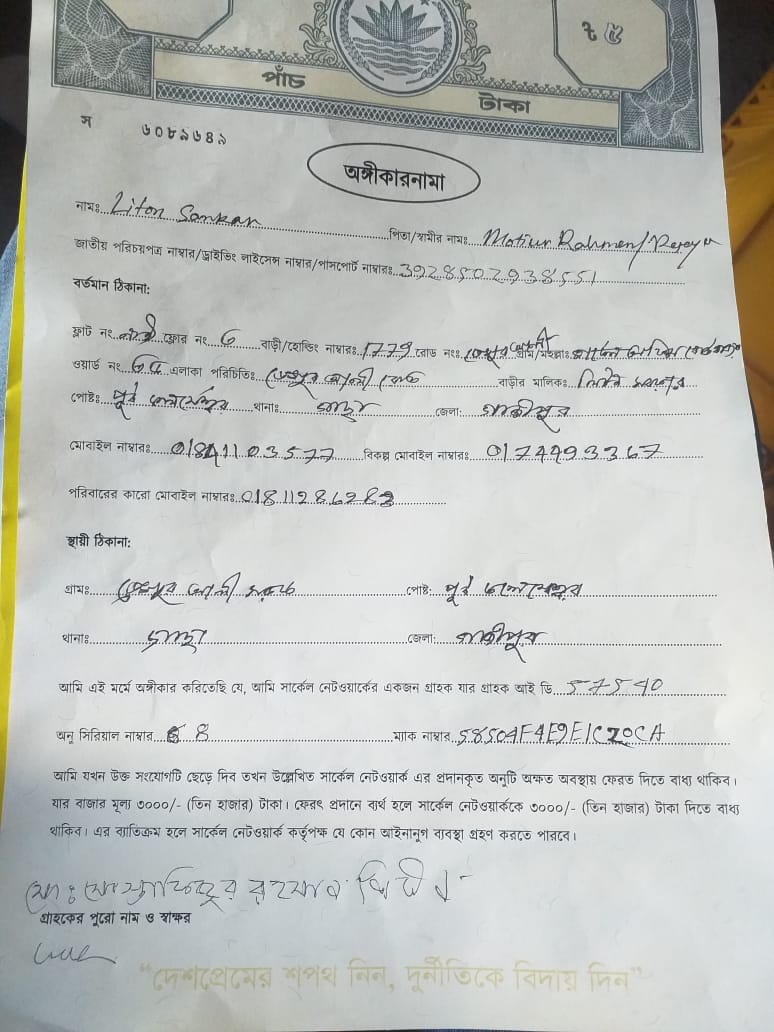 ৳ ৫
পাঁচ টাকা
স ৬০৮৯৬৪৯
অঙ্গীকারনামা
নামঃ Liton Sarkar পিতা/স্বামীর নামঃ Motiur Rahmen/
জাতীয় পরিচয়পত্র নাম্বার/ড্রাইভিং লাইসেন্স নাম্বার/পাসপোর্ট নাম্বারঃ 3928502938551
বর্তমান ঠিকানা:
ফ্লাট নং ফ্লোর নং 6 বাড়ী/হোল্ডিং নাম্বারঃ 1779 রোড নংঃ গ্রাম/মহল্লাঃ
ওয়ার্ড নং এলাকা পরিচিতিঃ বাড়ীর মালিকঃ লিটন সরকার
পোষ্টঃ পূর্ব থানাঃ গাছা জেলা: গাজীপুর
মোবাইল নাম্বারঃ 01841103577 বিকল্প মোবাইল নাম্বারঃ 01744993367
পরিবারের কারো মোবাইল নাম্বারঃ
স্থায়ী ঠিকানা:
গ্রামঃ পোষ্ট: পূর্ব
থানাঃ গাছা জেলা: গাজীপুর
আমি এই মর্মে অঙ্গীকার করিতেছি যে, আমি সার্কেল নেটওয়ার্কের একজন গ্রাহক যার গ্রাহক আই ডি 57540
অনু সিরিয়াল নাম্বার 8 ম্যাক নাম্বার 58504F4E9E1C20CA
আমি যখন উক্ত সংযোগটি ছেড়ে দিব তখন উল্লেখিত সার্কেল নেটওয়ার্ক এর প্রদানকৃত অনুটি অক্ষত অবস্থায় ফেরত দিতে বাধ্য থাকিব।
যার বাজার মূল্য ৩০০০/- (তিন হাজার) টাকা। ফেরৎ প্রদানে ব্যর্থ হলে সার্কেল নেটওয়ার্ককে ৩০০০/- (তিন হাজার) টাকা দিতে বাধ্য
থাকিব। এর ব্যতিক্রম হলে সার্কেল নেটওয়ার্ক কর্তৃপক্ষ যে কোন আইনানুগ ব্যবস্থা গ্রহণ করতে পারবে।
মোঃ রহমান
গ্রাহকের পুরো নাম ও স্বাক্ষর
"দেশপ্রেমের শপথ নিন, দুর্নীতিকে বিদায় দিন"